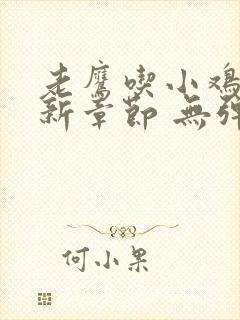 老鹰喫小鸡
新章節 無弹
何小果